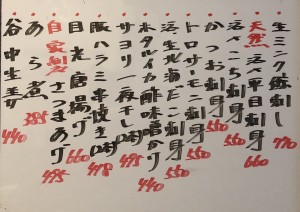 生ミンク鯨刺し 770
天然活〆平目刺身 660
活〆こち刺身 550
かつお刺身 550
トロサーモン刺身 550
活生北海だこ刺身 550
ホタルイカ酢味噌かり 440
サヨリ一夜干し 495
豚ハラミ串焼き 418
目光唐揚げ 660
自家製さつまあげ 495
あら煮 385
谷中生姜 440